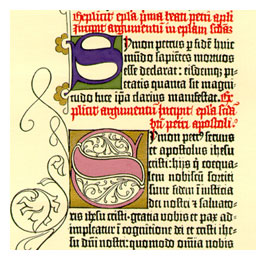 Explicit epl̄a prima beati petri apl̄i
Incipit argumentum in eplam
Symon petrus ꝑ fidē huic
mūdo sapiētes mortuos
esse declarat: eisdemq; pi-
etatis quanta sit magni-
tudo luce ip̄a clarius manifestat. Ex-
plicit argumentū Incipit epl̄a secun-
petri apostoli.
Symon petr9 servus
et apostolus ihesu
cristi: hijs q̄ coequa-
lem nobiscū sortiti
sunt fidem ī iusticia
dei nostri et salvato-
ris ihesu cristi. gratia vobis et pax ad-
impleatur ī cognitione dei et cristi ihe-
su dn̄i nostri: quomodo omnia vobis